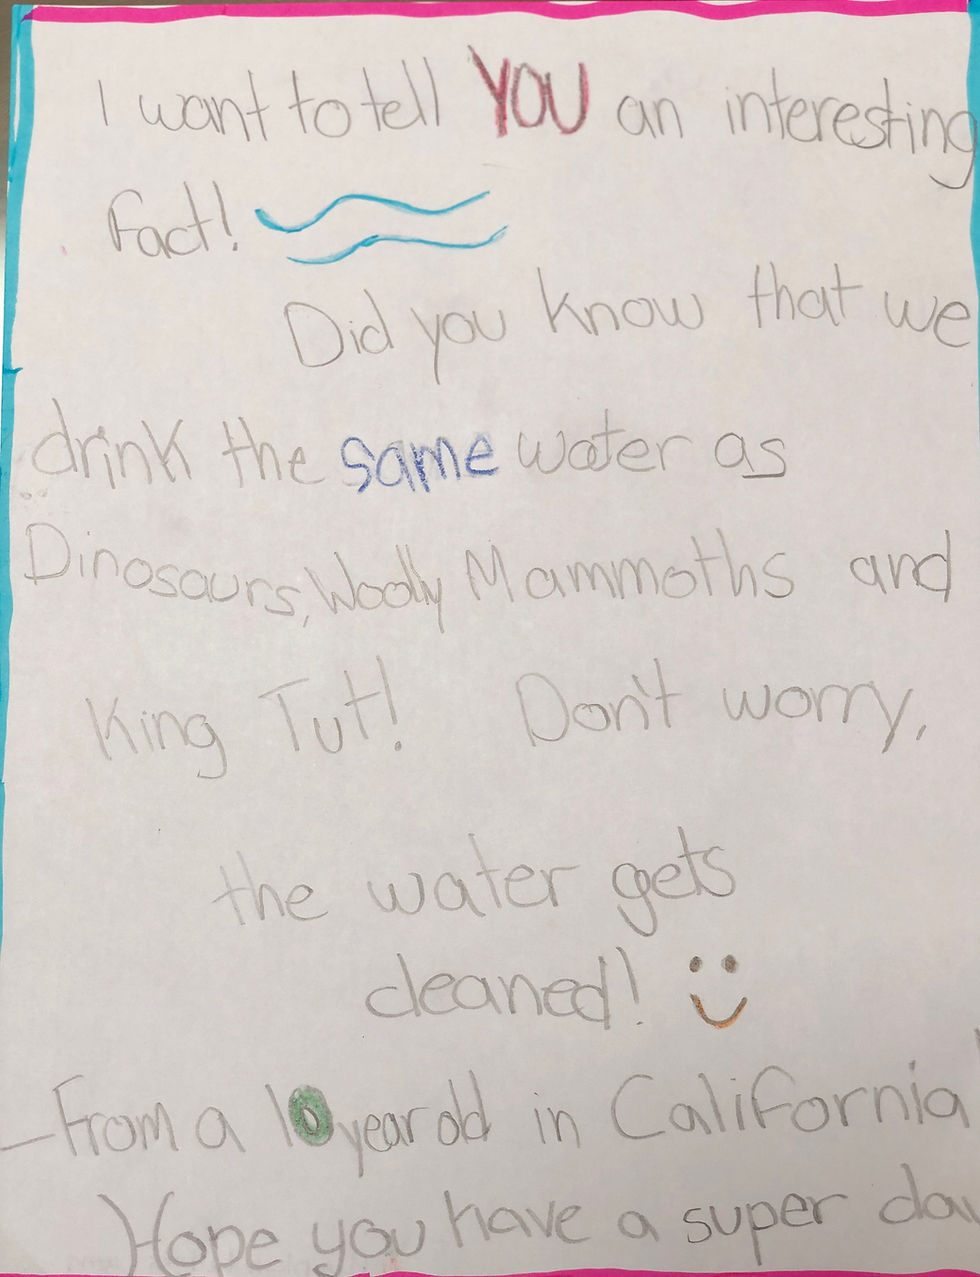 I want to tell YOU an interesting
Fact!
Did you know that we
drink the same water as
Dinosaurs, Woolly Mammoths and
King Tut! Don't worry,
the water gets
cleaned!
—From a 10 year old in California
Hope you have a super day